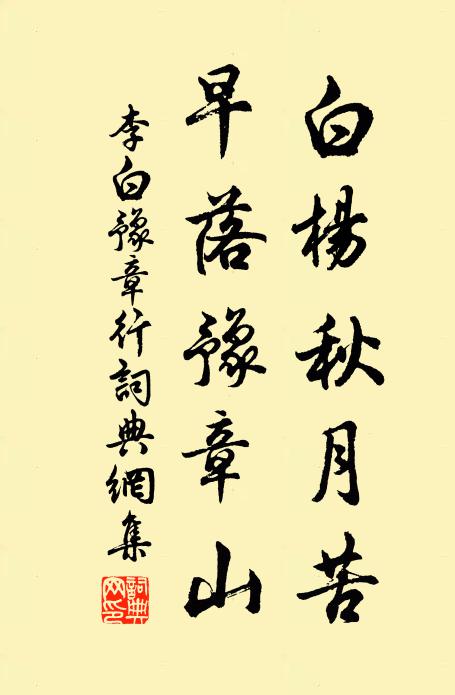 白楊秋月苦
早落豫章山
李白豫章行詞典網集